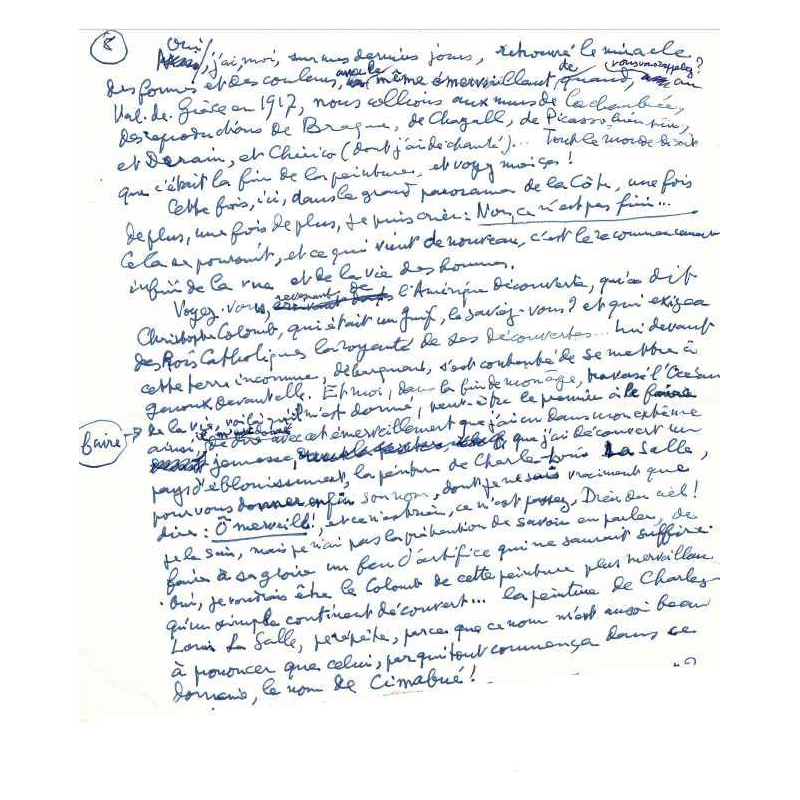 8
Oui
, j'ai, moi, sur mes derniers jours, retrouvé le miracle
des formes et des couleurs, avec le même émerveillement de quand, vous vous rappelez? au
Val-de-Grâce en 1917, nous collions aux murs de la chambrée,
des reproductions de Braque, de Chagall, de Picasso bien sûr,
et Derain, et Chirico (dont j'ai déchanté)... Tout le monde disait
que c'était la fin de la peinture, et voyez moi ça!
Cette fois, ici, dans le grand panorama de la Côte, une fois
de plus, une fois de plus, je puis crier: Non, ce n'est pas fini...
Cela se poursuit, et ce qui vient de nouveau, c'est le recommencement
infini de la vue et de la vie des hommes.
Voyez-vous, revenant de l'Amérique découverte, qu'a dit
Christophe Colomb, qui était un Juif, le saviez-vous? et qui exigea
des Rois Catholiques la royauté de ses découvertes... lui devant
cette terre inconnue, débarquant, s'est contenté de se mettre à
genoux devant elle. Et moi, dans la fin de mon âge, traversé l'Océan
de la vie, voilà qu'il m'est donné, peut-être le premier à le faire
faire
ainsi, de dire avec cet émerveillement que j'ai eu dans mon extrême
jeunesse, que j'ai découvert un
pays d'éblouissement, la peinture de Charles-Louis La Salle,
pour vous donner enfin son nom, dont je ne sais vraiment que
dire: Ô merveille!, et ce n'est rien, ce n'est pas assez, Dieu du ciel!
je le sais, mais je n'ai pas la prétention de savoir en parler, de
faire à sa gloire un feu d'artifice qui ne saurait suffire.
Oui, je voudrais être le Colomb de cette peinture plus merveilleuse
qu'un simple continent découvert... la peinture de Charles-
Louis La Salle, je répète, parce que ce nom m'est aussi beau
à prononcer que celui, par qui tout commença dans ce
domaine, le nom de Cimabué!